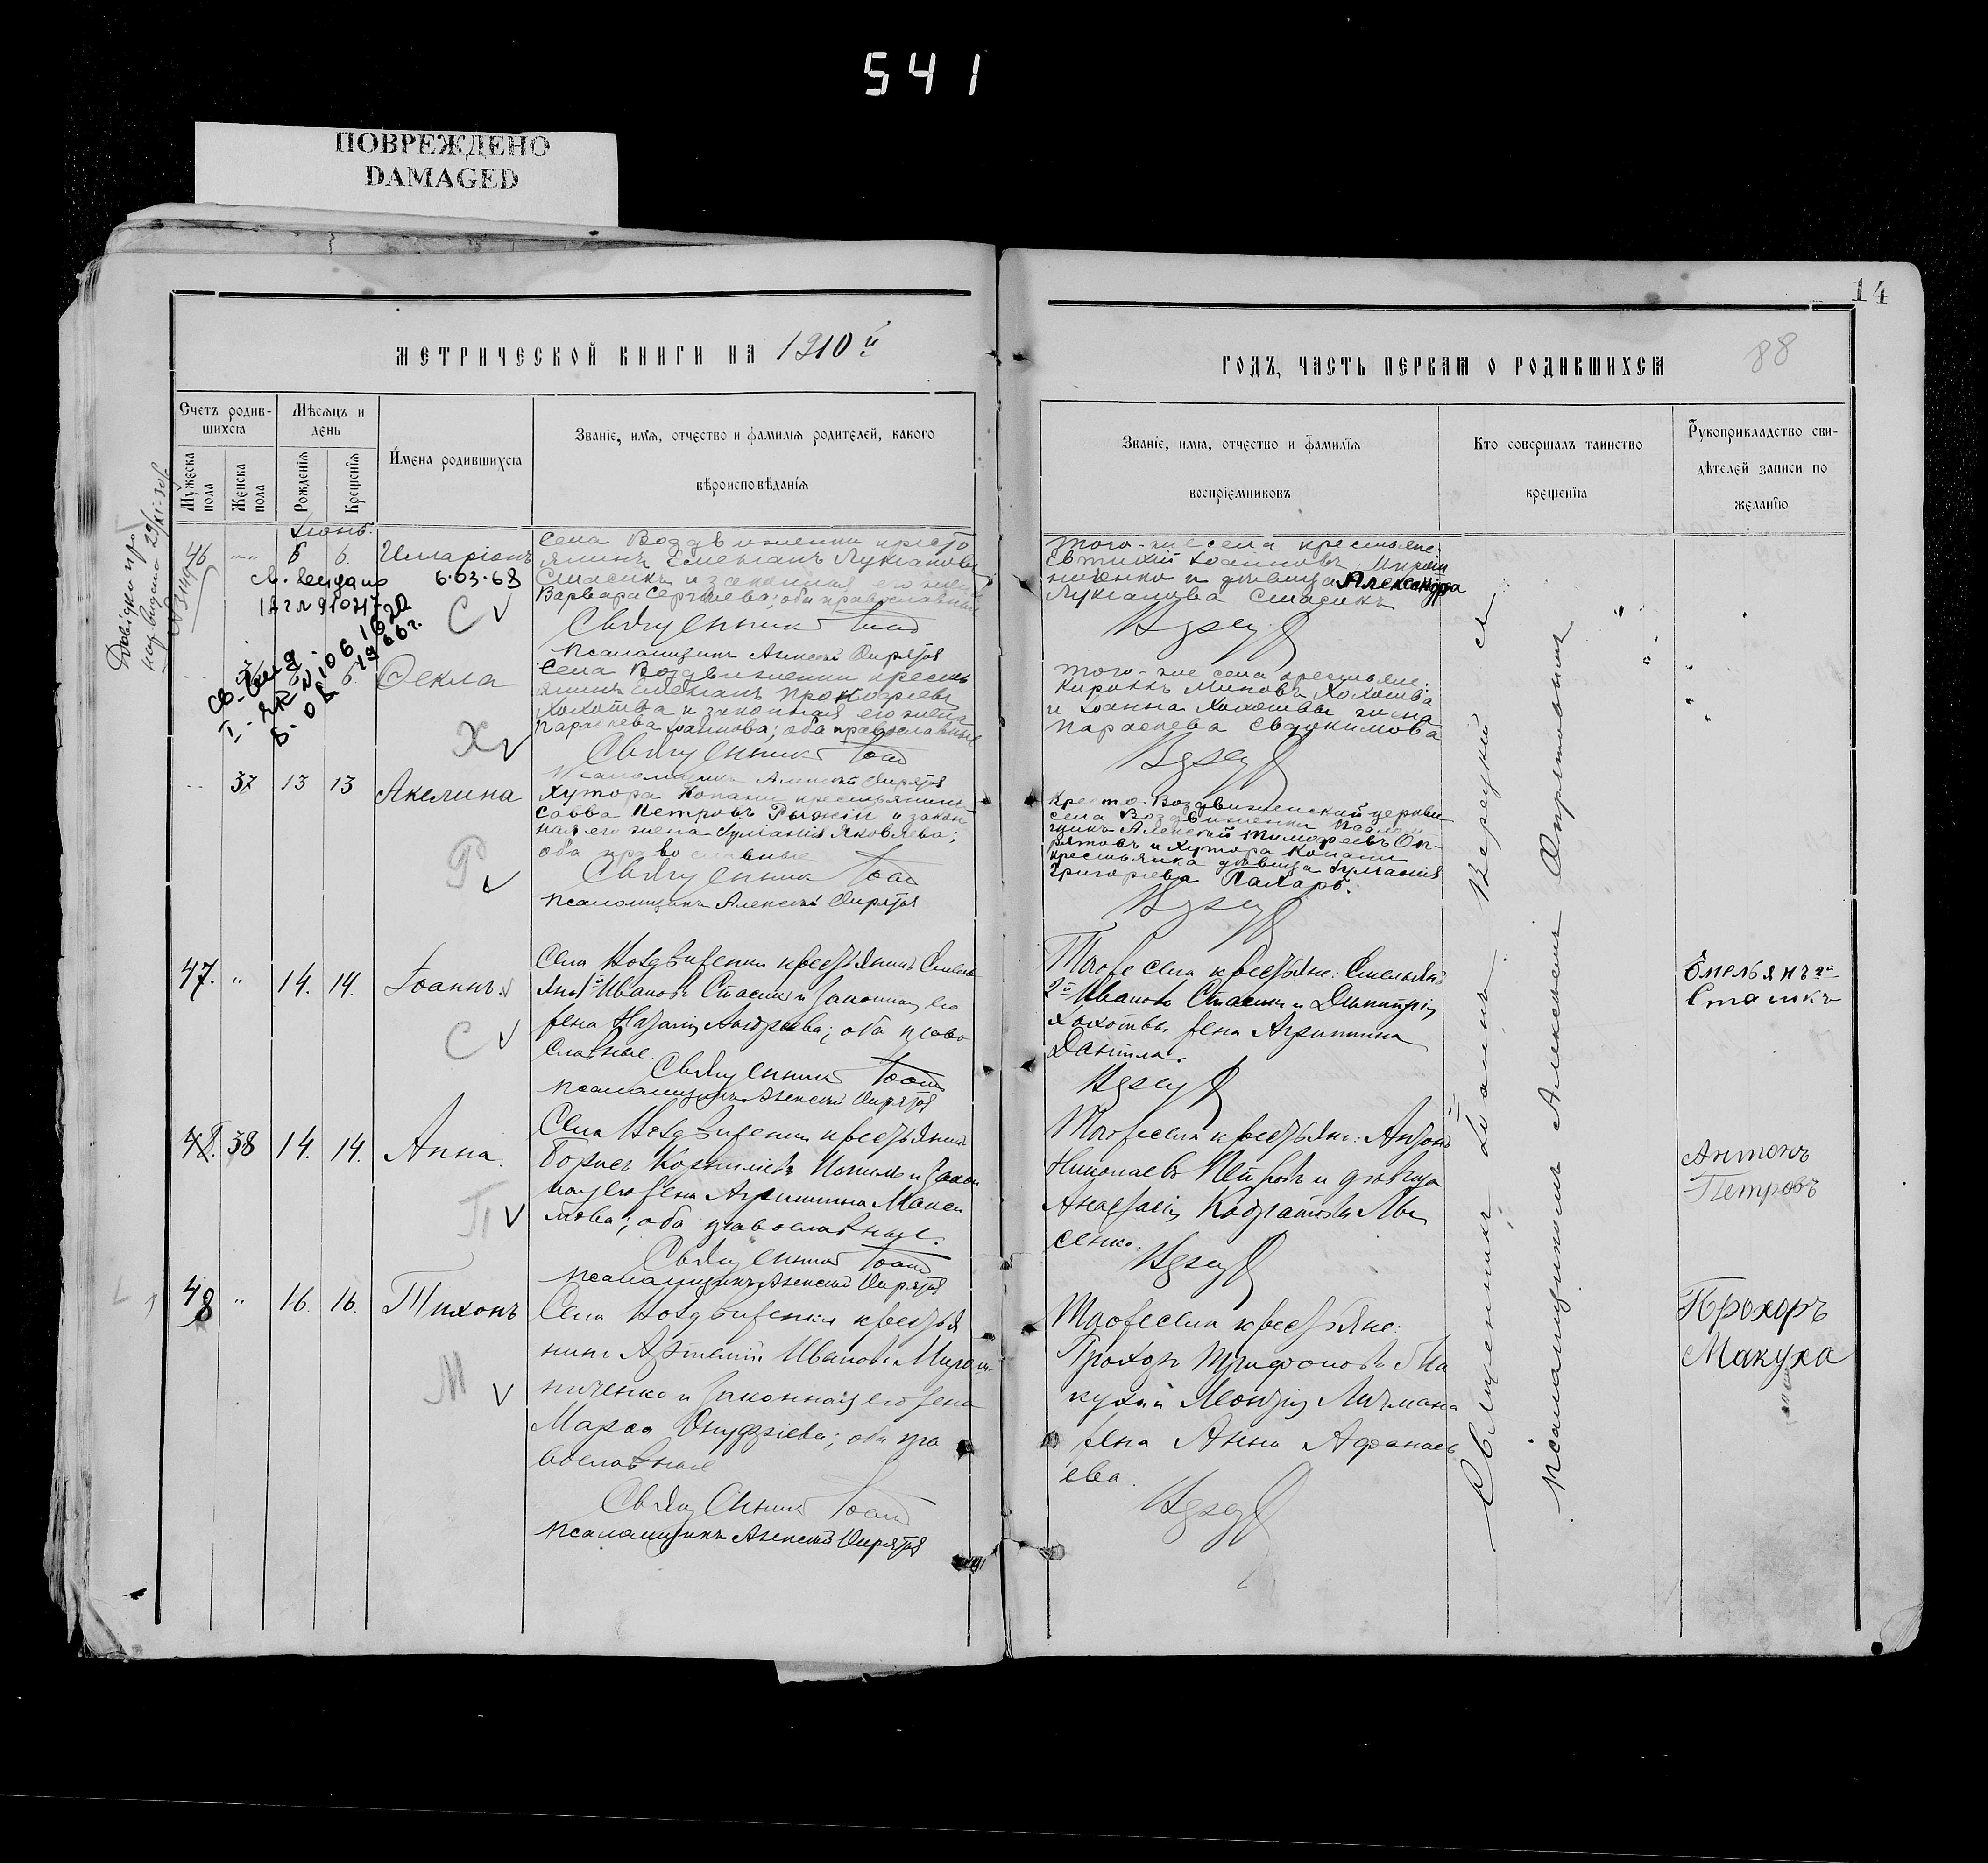 541
ПОВРЕЖДЕНО
DAMAGED
14
88
МЕТРИЧЕСКОЙ КНИГИ НА 1910й
ГОДЪ, ЧАСТЬ ПЕРВАЯ О РОДИВШИХСЯ
Счетъ родив-
шихся
Мужеска
пола
Женска
пола
Мѣсяцъ и
день
Рожденія
Крещенія
Имена родившихся
Званіе, имя, отчество и фамилія родителей, какого
вѣроисповѣданія
Званіе, имя, отчество и фамилія
воспріемниковъ
Кто совершалъ таинство
крещенія
Рукоприкладство сви-
дѣтелей записи по
желанію
Іюнь.
46 6 6. Илларіонъ
6.03.68
С
Села Воздвиженки кресть
янинъ Емельянъ Лукіановъ
Стасикъ и законная его жена
Варвара Сергіева; оба православные
Священникъ Іоан
Псаломщикъ Алексѣй Опрятов
того-же села крестьяне:
Евтихій Іоанновъ Мирош
ниченко и дѣвица Александра
Лукіанова Стасикъ
6. Ѳекла
Х
Села Воздвиженки кресть
янинъ Емельянъ Прокопіевъ
Хохотва и законная его жена
Параскева Іоаннова; оба православные
Священникъ Іоан
Псаломщикъ Алексѣй Опрятов
того-же села крестьяне:
Хохотва
и Іоанна Хохотвы жена
Параскева Евдокимова
37 13 13 Акелина
Р
Хутора Копани крестьянинъ
Савва Петровъ Рыжій и закон
ная его жена Іуліанія Яковлева;
оба православные
Священникъ Іоан
Псаломщикъ Алексѣй Опрятов
Кресто-Воздвиженской церкви
села Воздвиженки Псалом
щикъ Алексѣй Тимофеевъ Оп-
рятовъ и хутора Копани
крестьянка дѣвица Іуліанія
Григорьева Пахарь.
47. " 14. 14. Іоаннъ.
С
Села Воздвиженки крестьянинъ Емель
янъ 1й Ивановъ Стасикъ и законная его
жена Наталія Андреева; оба право
славные.
Священникъ Іоан
Псаломщикъ Алексѣй Опрятов
Того же села крестьяне: Емельянъ
2й Ивановъ Стасикъ и Димитрія
Хохотвы жена Агриппина
Даніила.
Емельянъ 2й
Стасикъ
38 14. 14. Анна.
П
Села Воздвиженки крестьянинъ
Борисъ Корниліевъ и закон
ная его жена Агриппина Макси
мова; оба православные.
Священникъ Іоан
Псаломщикъ Алексѣй Опрятов
Того же села крестьяне: Антонъ
Николаевъ Петровъ и дѣвица
Анастасія Кодратова Лы
сенко.
Антонъ
Петровъ
48 " 16. 16. Тихонъ
М
Села Воздвиженки крестья
нинъ Артемій Ивановъ Мирош
ниченко и законная его жена
Марѳа Онуфріева; оба пра
вославные
Священникъ Іоан
Псаломщикъ Алексѣй Опрятов
Того же села крестьяне:
Прохоръ Трифоновъ Ма
куха и Леонтія Личмана
жена Анна Афанась
ева.
Прохоръ
Макуха
Священникъ Іоаннъ
Псаломщикъ Алексѣй Опрятовъ